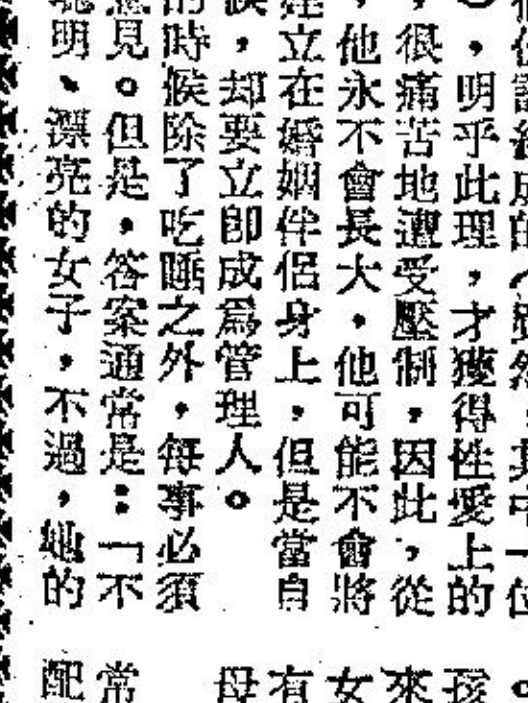 ，明乎此理，才獲得性愛上的
，很痛苦地遭受壓制，因此，從
，他永不會長大，他可能不會將
建立在婚姻伴侶身上，但是當自
，却要立卽成爲管理人。
的時候除了吃睡之外，每事必須
意見。但是，答案通常是：「不
聰明、漂亮的女子，不過，她的
孩
來
女
有
母
常
配